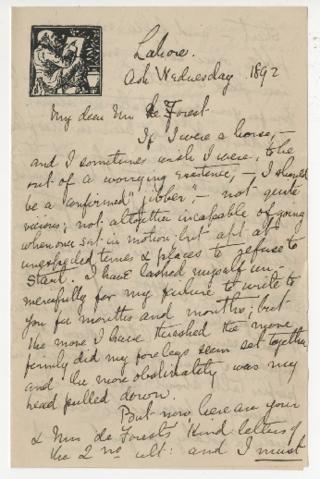 Lahore.
Ash Wednesday 1892
My dear Mr de Forest
If I were a horse, –
and I sometimes wish I were, to be
out of a worrying existence, – I should
be a "confirmed" "jibber", – not quite
vicious; not altogether incapable of going
when once set in motion but apt at
unexpected times & places to refuse to
start. I have lashed myself un-
mercifully for my failure to write to
you for months and months; but
the more I have thrashed the more
firmly did my fore legs seem set together
and the more obstinately was my
head pulled down.
But now here are your
& Mrs de Forest's kind letters of
the 2nd ult: and I must